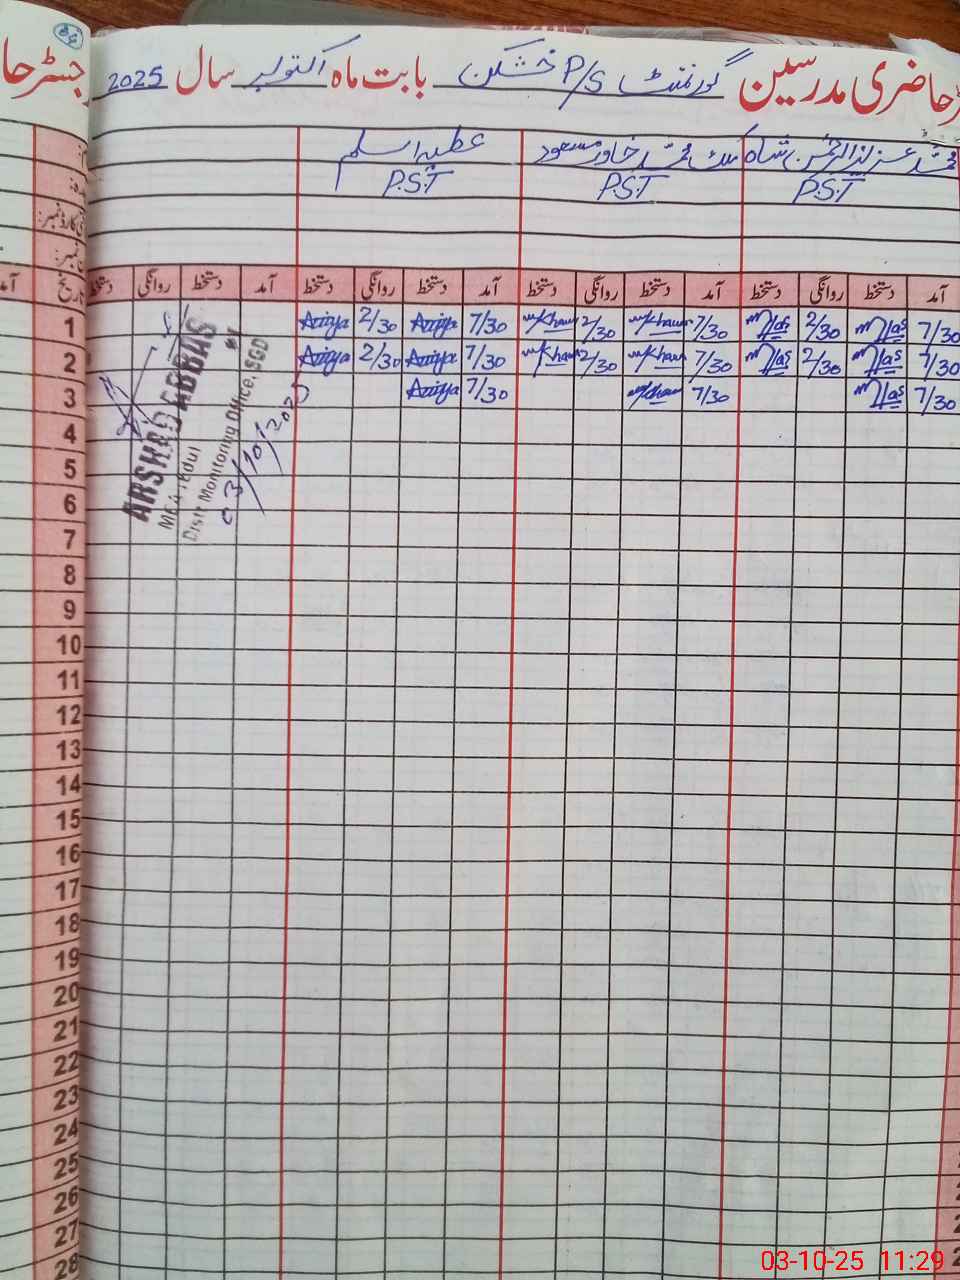 رجسٹر حا
رجسٹر حاضری مدرسین گورنمنٹ P/S خشکن بابت ماہ اکتوبر سال 2025
محمد عزیز الرحمن شاہ ملک محمد خاور مسعود عطیہ اسلم
P.S.T P.S.T P.S.T
آمد دستخط روانگی دستخط آمد دستخط روانگی دستخط آمد دستخط روانگی دستخط آمد دستخط روانگی دستخط تاریخ
7/30 2/30 7/30 2/30 7/30 2/30 1
7/30 2/30 7/30 2/30 7/30 2/30 2
7/30 7/30 7/30 3
4
5
6
7
8
9
10
11
12
13
14
15
16
17
18
19
20
21
22
23
24
25
26
27
28
ARSHAD ABBAS
Distt Monitoring Office, SGD
03/10/2025
03-10-25 11:29